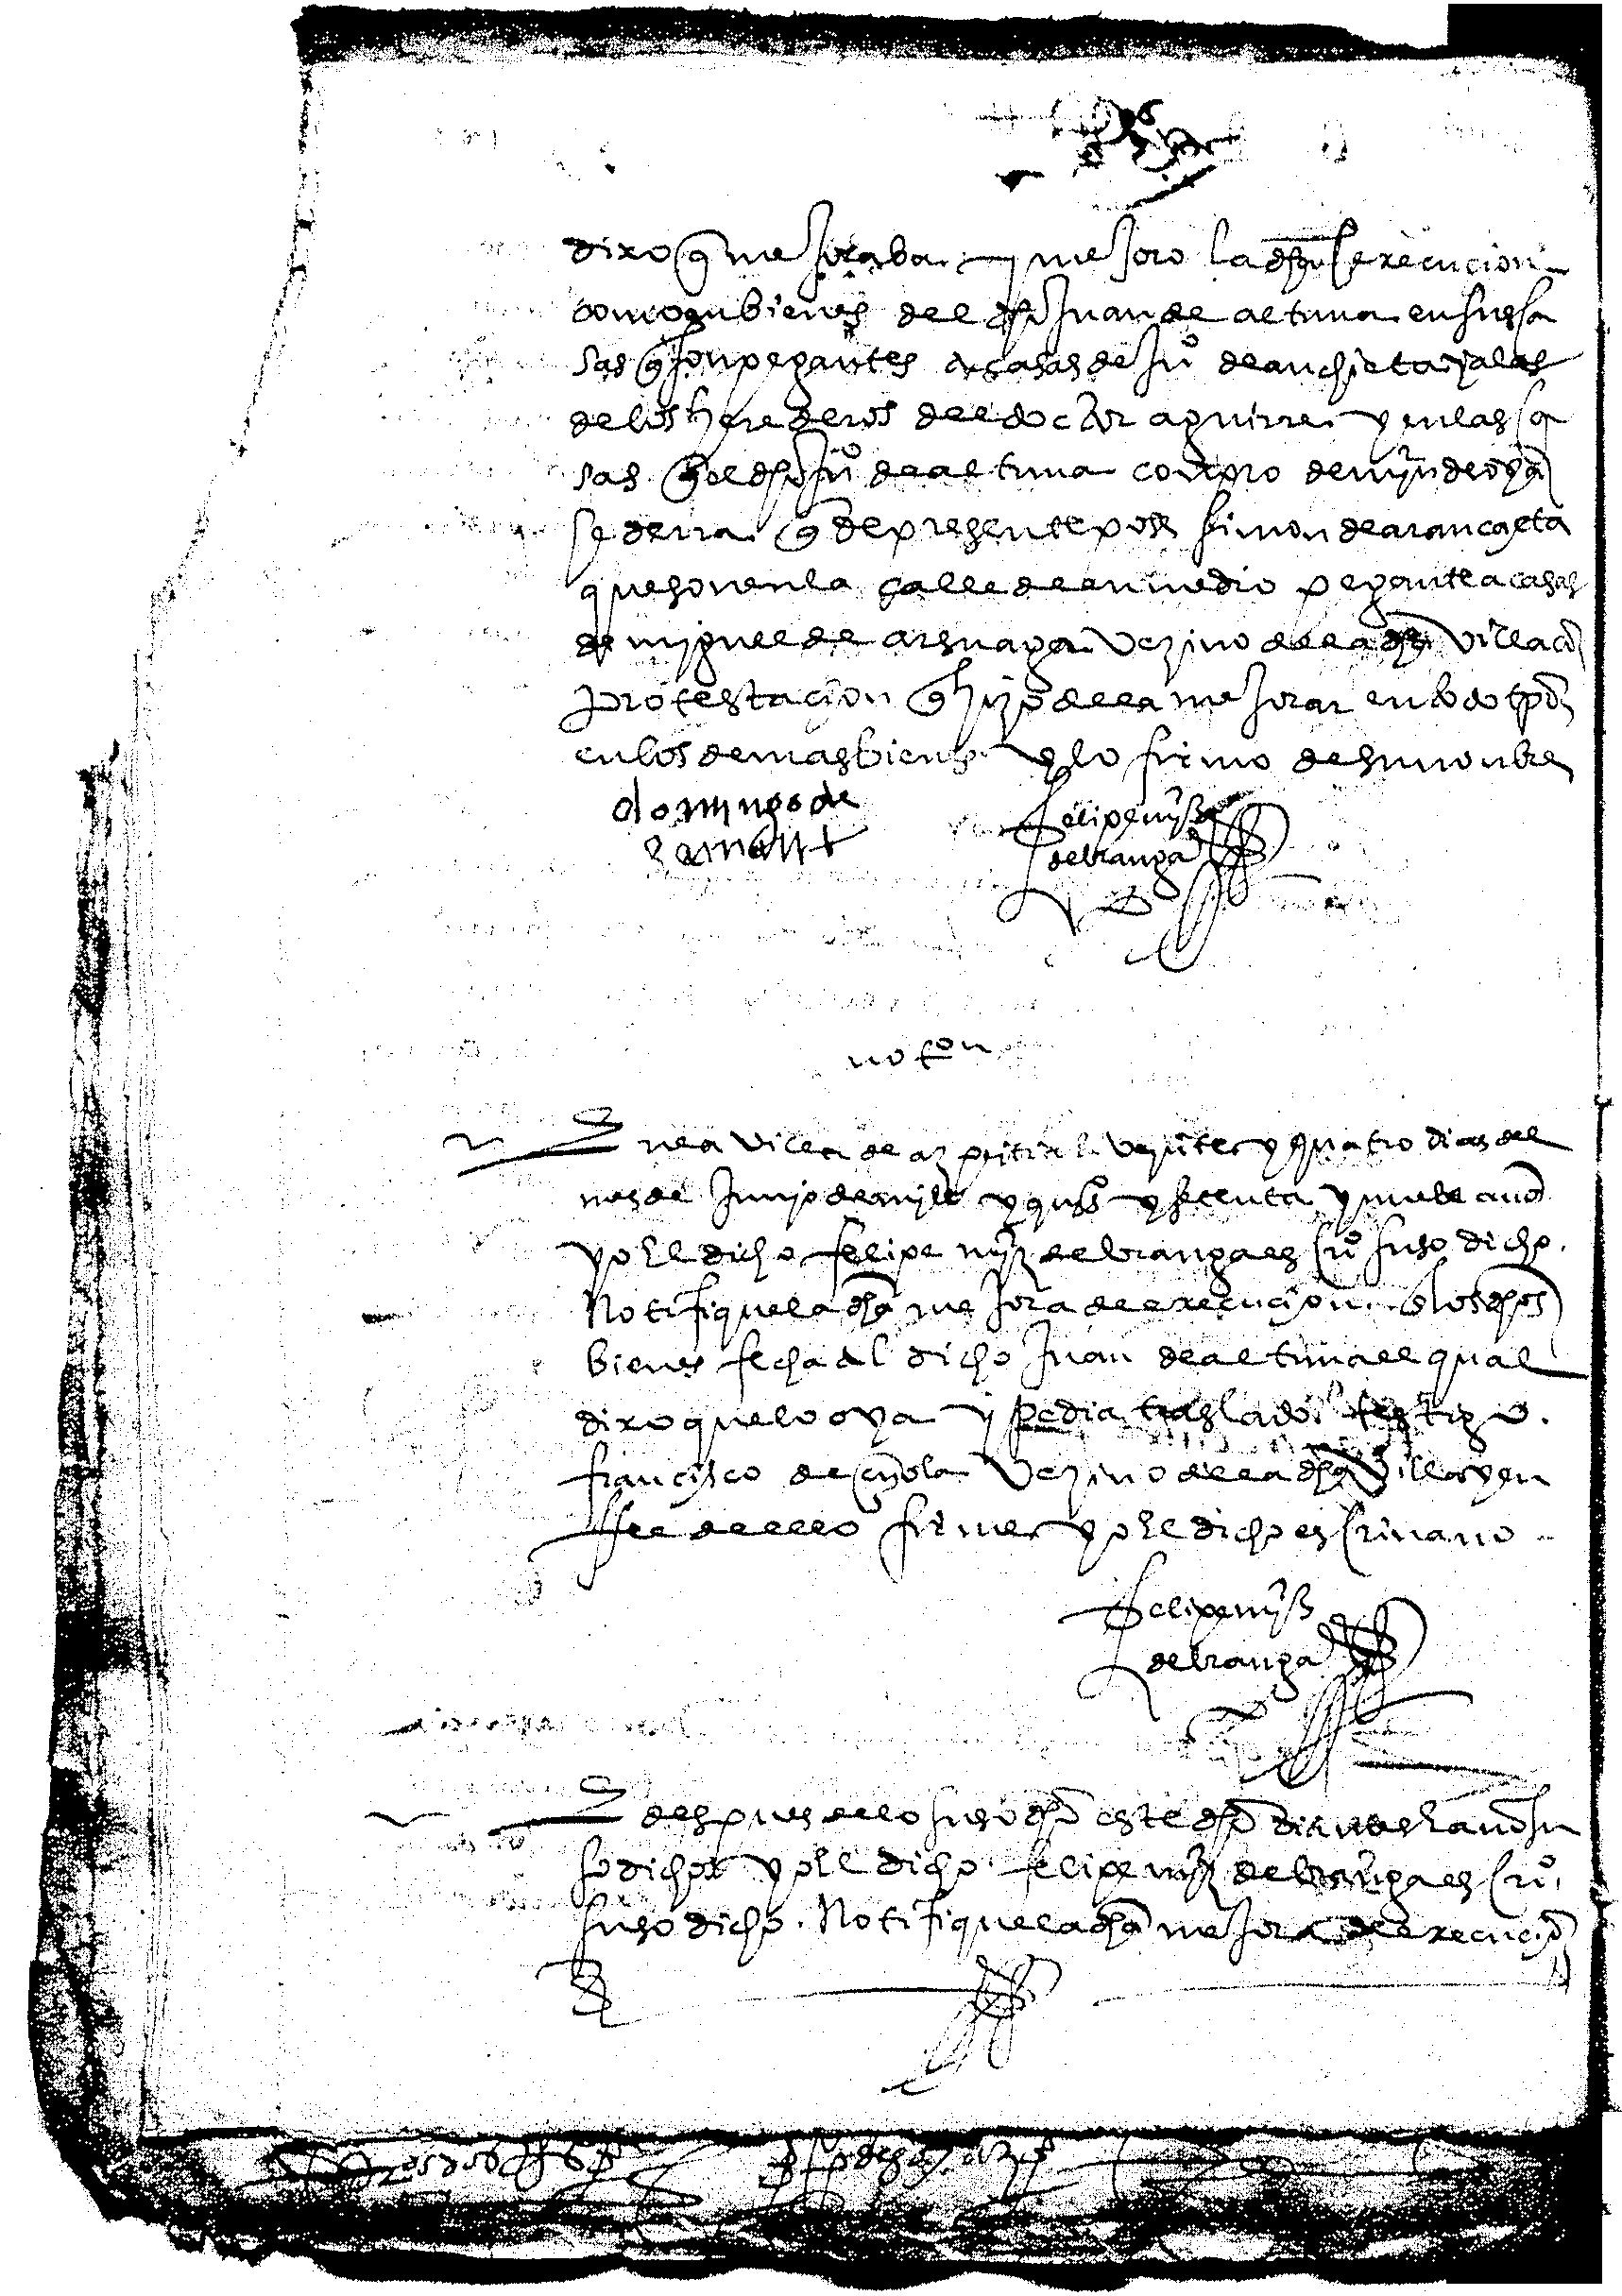 dixo q mejoraba y mejoro la dha execucion
como en bienes del dho Juan de altuna en sus ca
sas q son pegantes a casas de Juº de anchieta y a las
de los herederos del doctor aguirre y en las ca
sas q el dho Juº de altuna conpro de mȳn de
se derra q de presente pose simon de arancaeta
que son en la calle de enmedio pegante a casas
de miguel de arsuaga vezino de la dha villa cō
protestaçion q hizo de la mejorar en todo tpō
en los demas bienes y lo firmo de su nonbre
domingo de
felipe mȳz
de vranga
notºn
En la villa de azpeitia a veynte y quatro dias del
mes de Junyo de myll y quisº y setenta y nuebe años
yo el dicho felipe mȳz de vranga esc्riº suso dicho
Notifique la dha mejora de execuçion en los dhos
bienes fecha al dicho Juan de altuna el qual
dixo que lo oya y pedia traslado testigo
francisco de eyola vezino de la dha villa y en
ffee de ello firme yo el dicho escriuano
felipe mȳz
de vranga
E despues de lo suso dho este dho dia mes e año su
so dichos yo el dicho felipe mȳz de vranga escriº
suso dicho Notifique la dha mejora de execuçiō